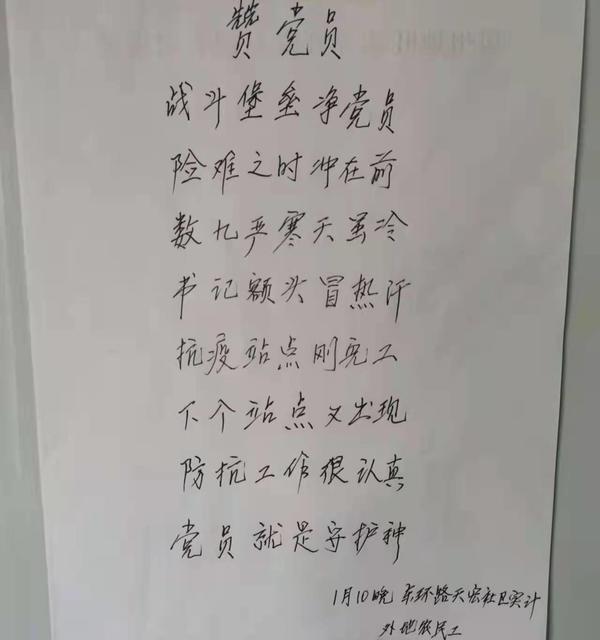 赞党员
战斗堡垒净党员
险难之时冲在前
数九严寒天虽冷
书记额头冒热汗
抗疫站点刚完工
下个站点又出现
防抗工作很认真
党员就是守护神
1月10晚 东环路天宏社区实计
外地农民工